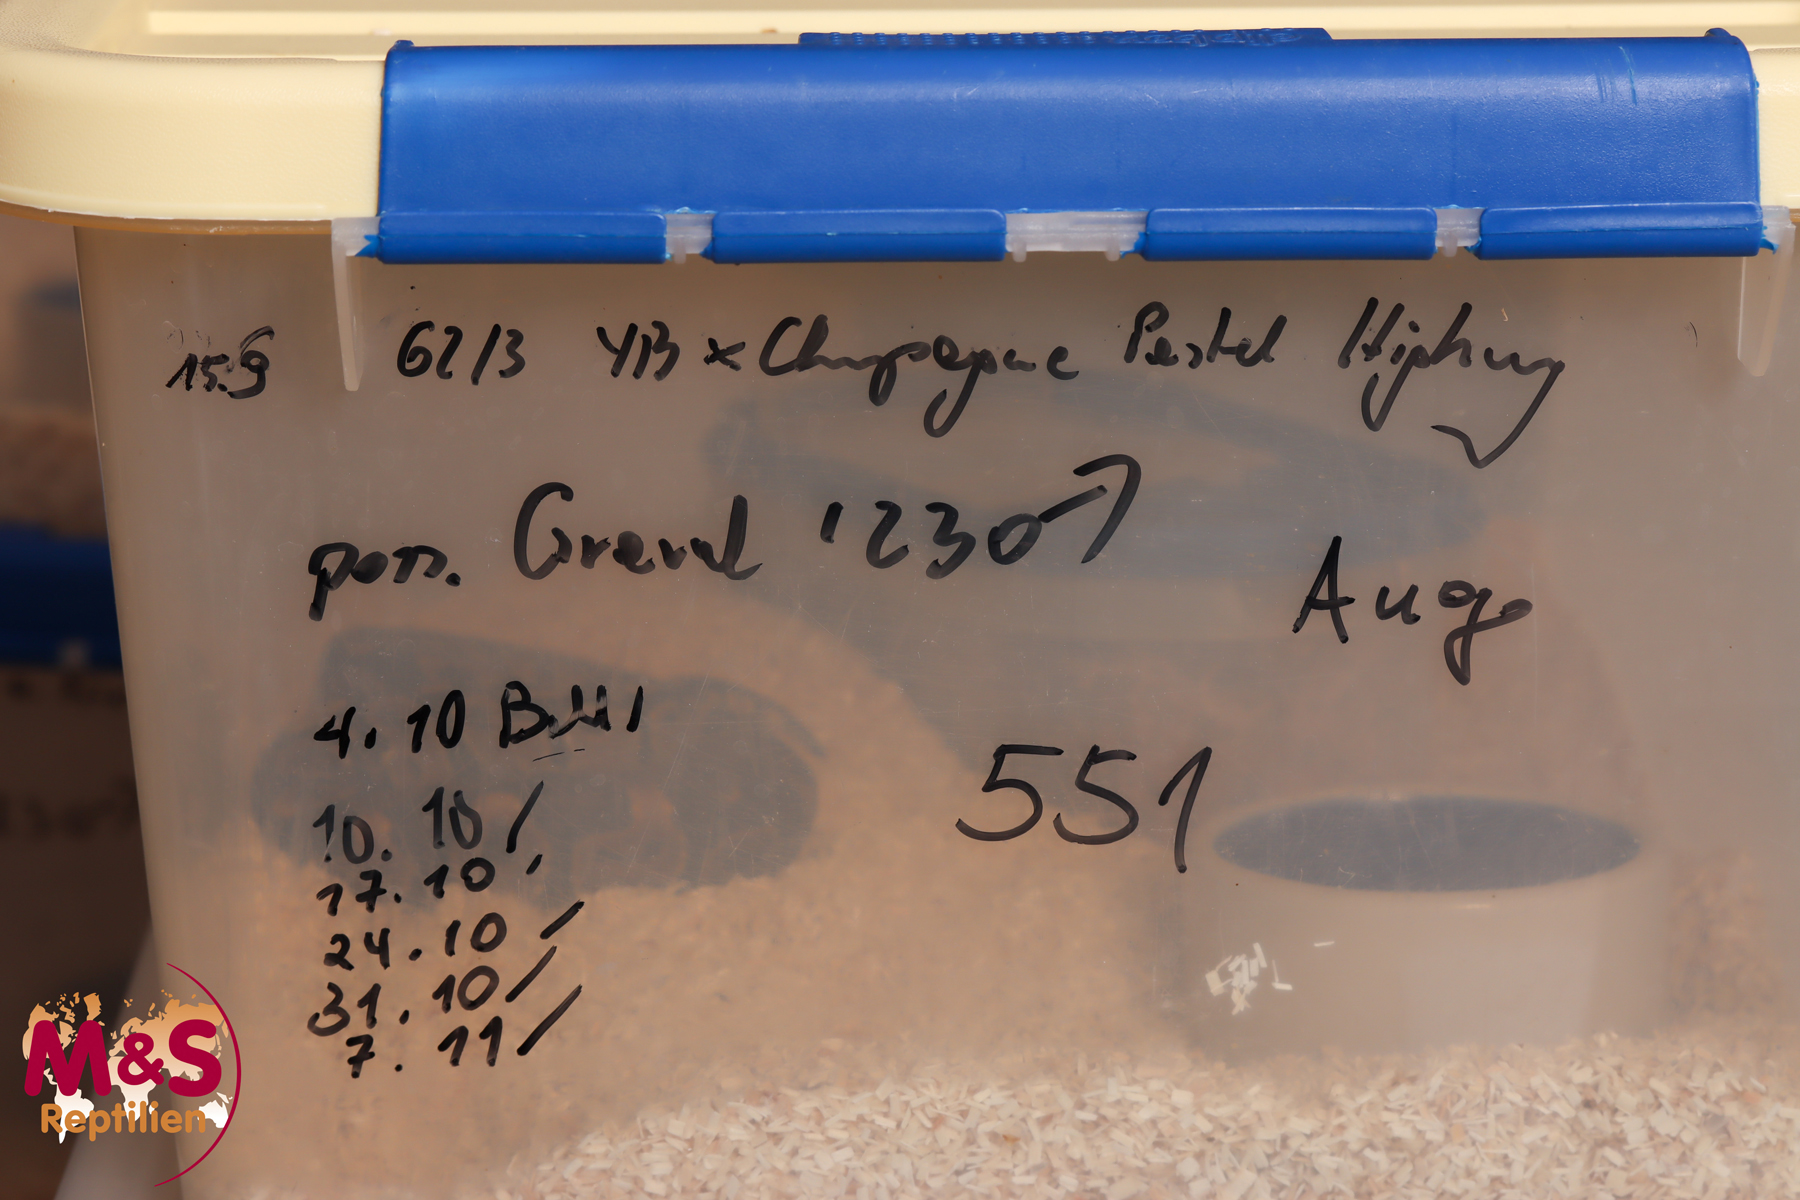 15.9 62/3 YB x Champagne Pastel Highway
poss. Gravel '23 ♂
Auge
4.10
551
10.10 /
17.10 /
24.10 /
31.10 /
7.11 /
M&S
Reptilien